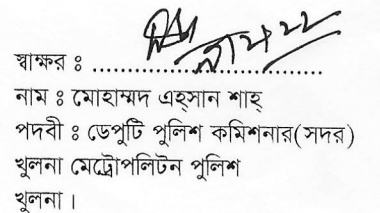 স্বাক্ষর ঃ ...................................
নাম ঃ মোহাম্মদ এহ্সান শাহ্
পদবী ঃ ডেপুটি পুলিশ কমিশনার(সদর)
খুলনা মেট্রোপলিটন পুলিশ
খুলনা ।